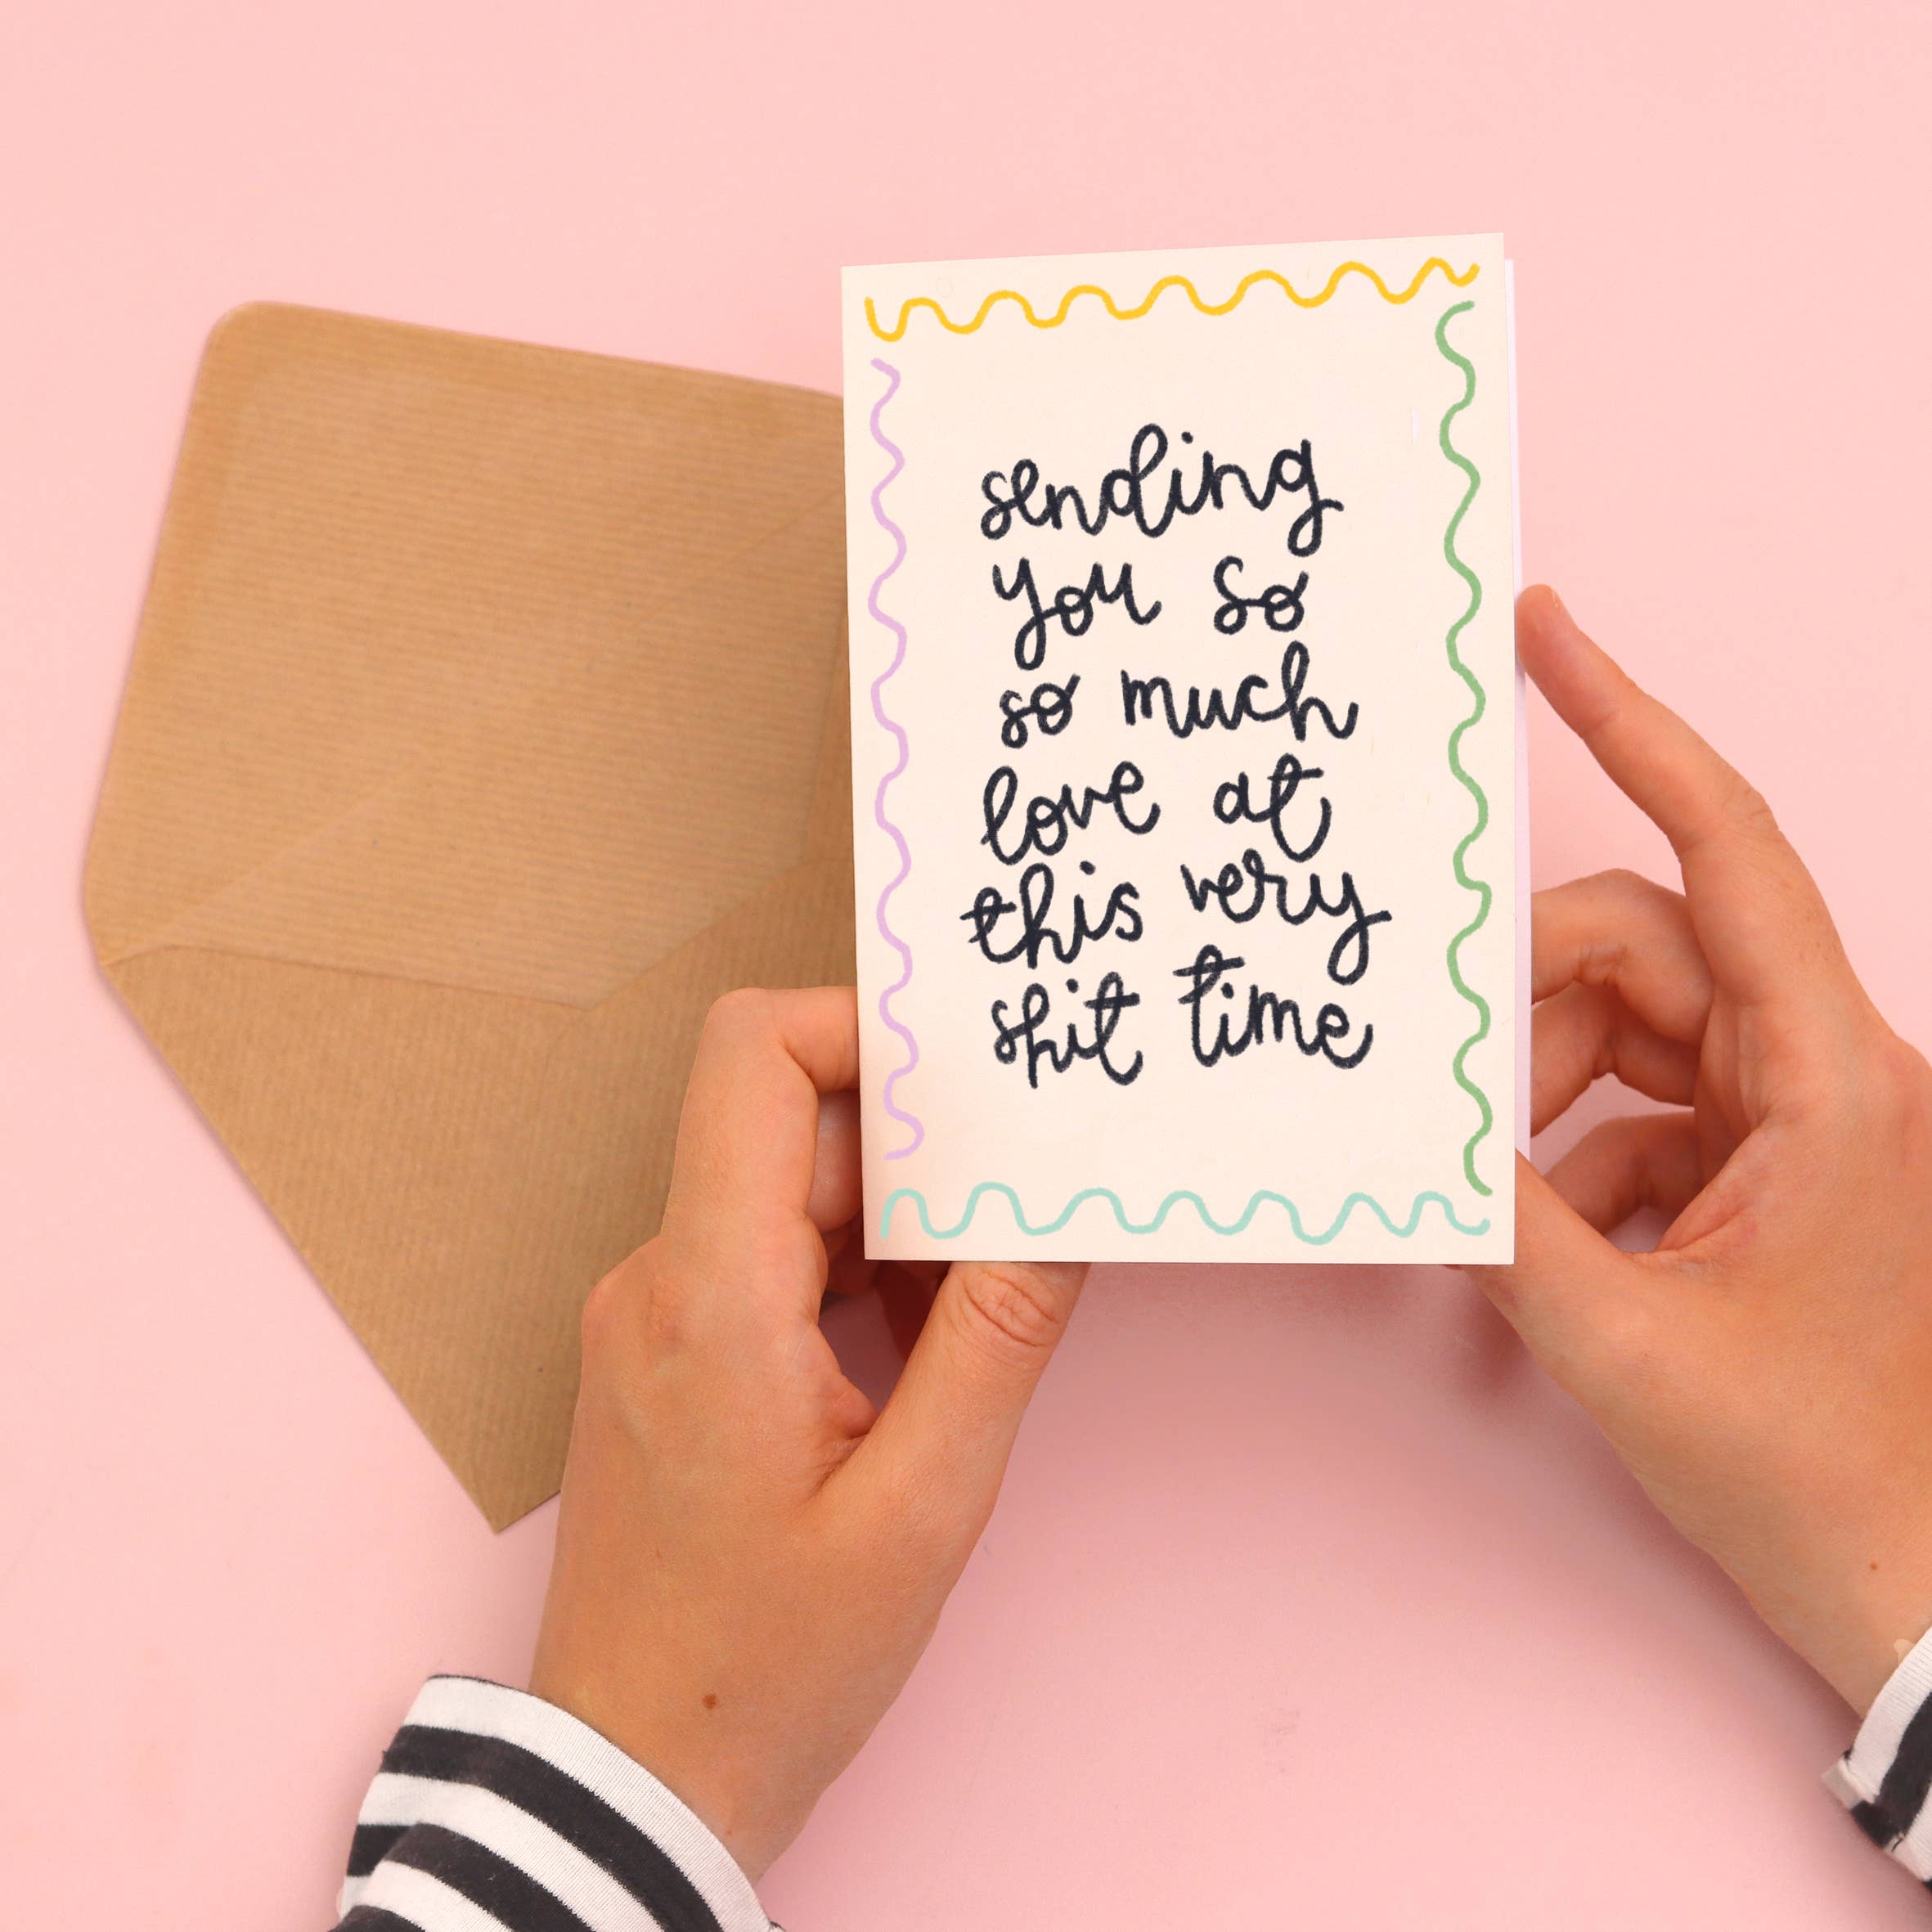 sending
you so
so much
love at
this very
shit time